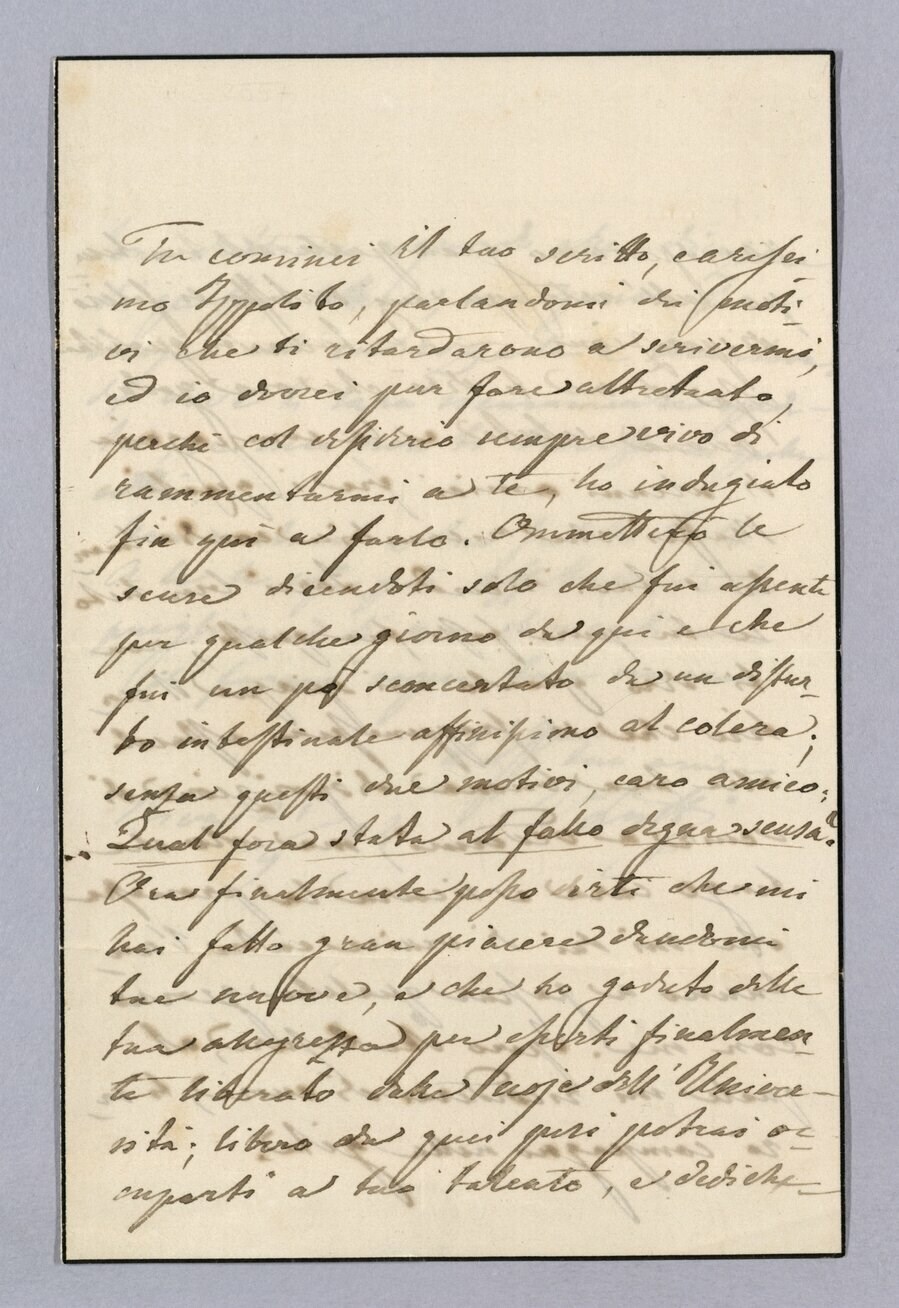 Tu cominci il tuo scritto, carissi-
mo Ippolito, parlandomi di moti-
vi che ti ritardarono a scrivermi,
ed io dovrei pur fare altretanto,
perchè col desiderio sempre vivo di
rammentarmi a te, ho indugiato
fin quì a farlo. Ommetterò le
scuse dicendoti solo che fui assente
per qualche giorno da qui e che
fui un pò sconcertato da un distur-
bo intestinale affinissimo al colera;
senza questi due motivi, caro amico:
"Qual fora stata al fallo degna scusa."
Ora finalmente posso dirti che mi
hai fatto gran piacere dandomi
tue nuove, e che ho goduto della
tua allegrezza per esserti finalmen-
te liberato dalle noje dell' Univer-
sità; libero da quei pesi potrai oc-
cuparti a tuo talento, e dediche-